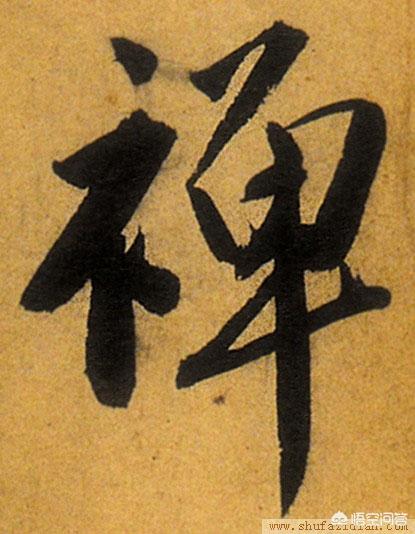 禅
悟空问答
www.shufazidian.com